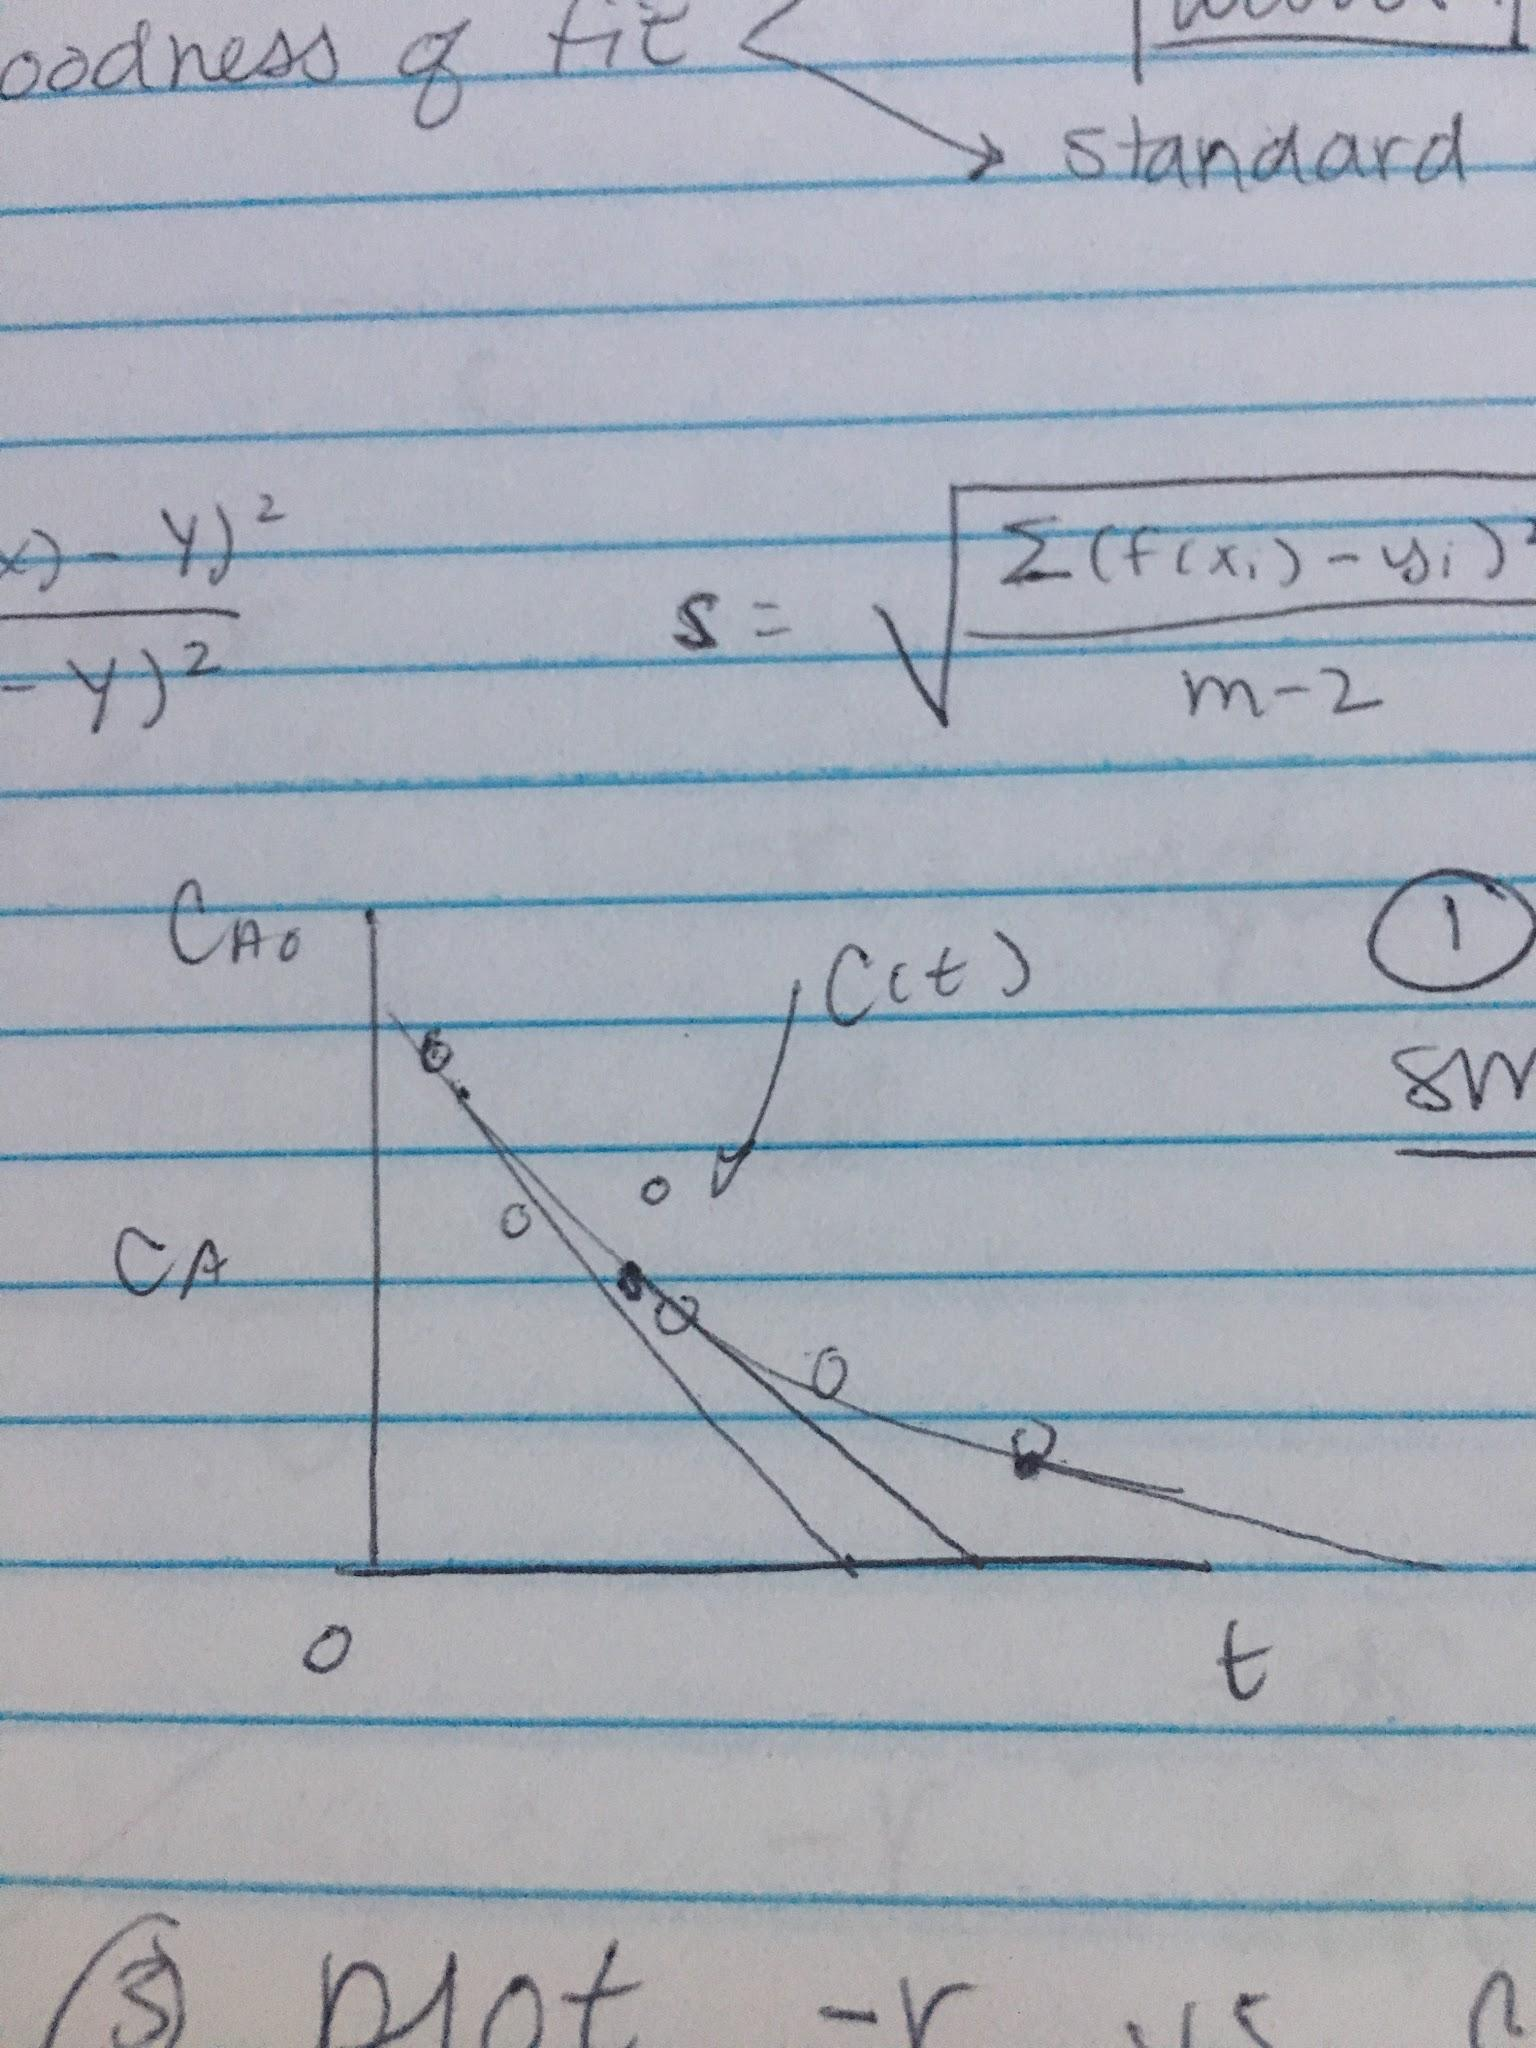 oodness of fit
standard
x) - y)²
- y)²
s = √ Σ(f(xi) - yi)²
m-2
CA0
C(t)
1
sm
CA
0
t
③ plot -r vs